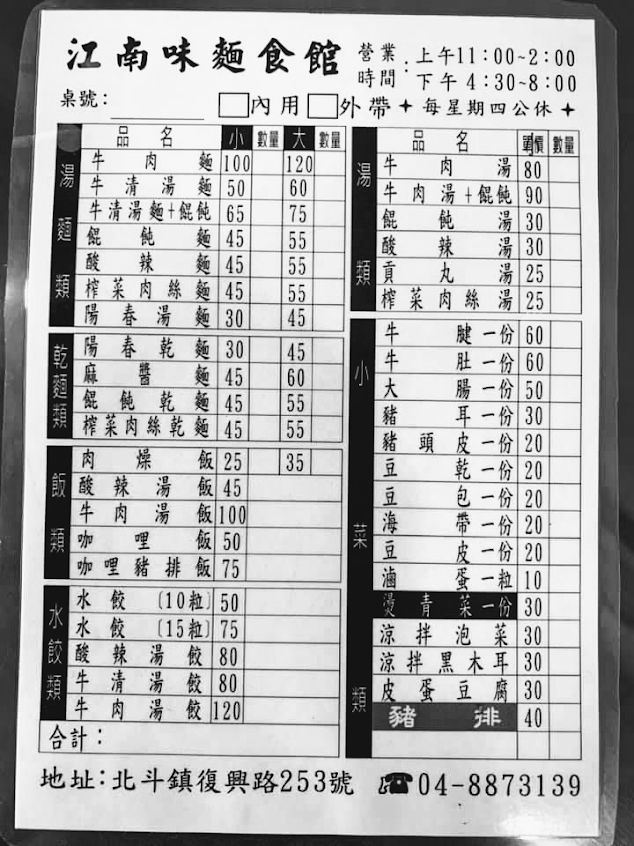 江南味麵食館
營業時間：上午11：00~2：00
下午4：30~8：00
桌號： 內用 外帶 ✦每星期四公休✦
湯麵類
品名 小 數量 大 數量
牛肉麵 100 120
牛清湯麵 50 60
牛清湯麵+餛飩 65 75
餛飩麵 45 55
酸辣麵 45 55
榨菜肉絲麵 45 55
陽春湯麵 30 45
乾麵類
陽春乾麵 30 45
麻醬麵 45 60
餛飩乾麵 45 55
榨菜肉絲乾麵 45 55
飯類
肉燥飯 25 35
酸辣湯飯 45
牛肉湯飯 100
咖哩飯 50
咖哩豬排飯 75
水餃類
水餃〔10粒〕 50
水餃〔15粒〕 75
酸辣湯餃 80
牛清湯餃 80
牛肉湯餃 120
合計：
湯類
品名 單價 數量
牛肉湯 80
牛肉湯+餛飩 90
餛飩湯 30
酸辣湯 30
貢丸湯 25
榨菜肉絲湯 25
小菜類
牛腱一份 60
牛肚一份 60
大腸一份 50
豬耳一份 30
豬頭皮一份 20
豆乾一份 20
豆包一份 20
海帶一份 20
豆皮一份 20
滷蛋一粒 10
燙青菜一份 30
涼拌泡菜 30
涼拌黑木耳 30
皮蛋豆腐 30
豬排 40
地址：北斗鎮復興路253號 ☎04-8873139